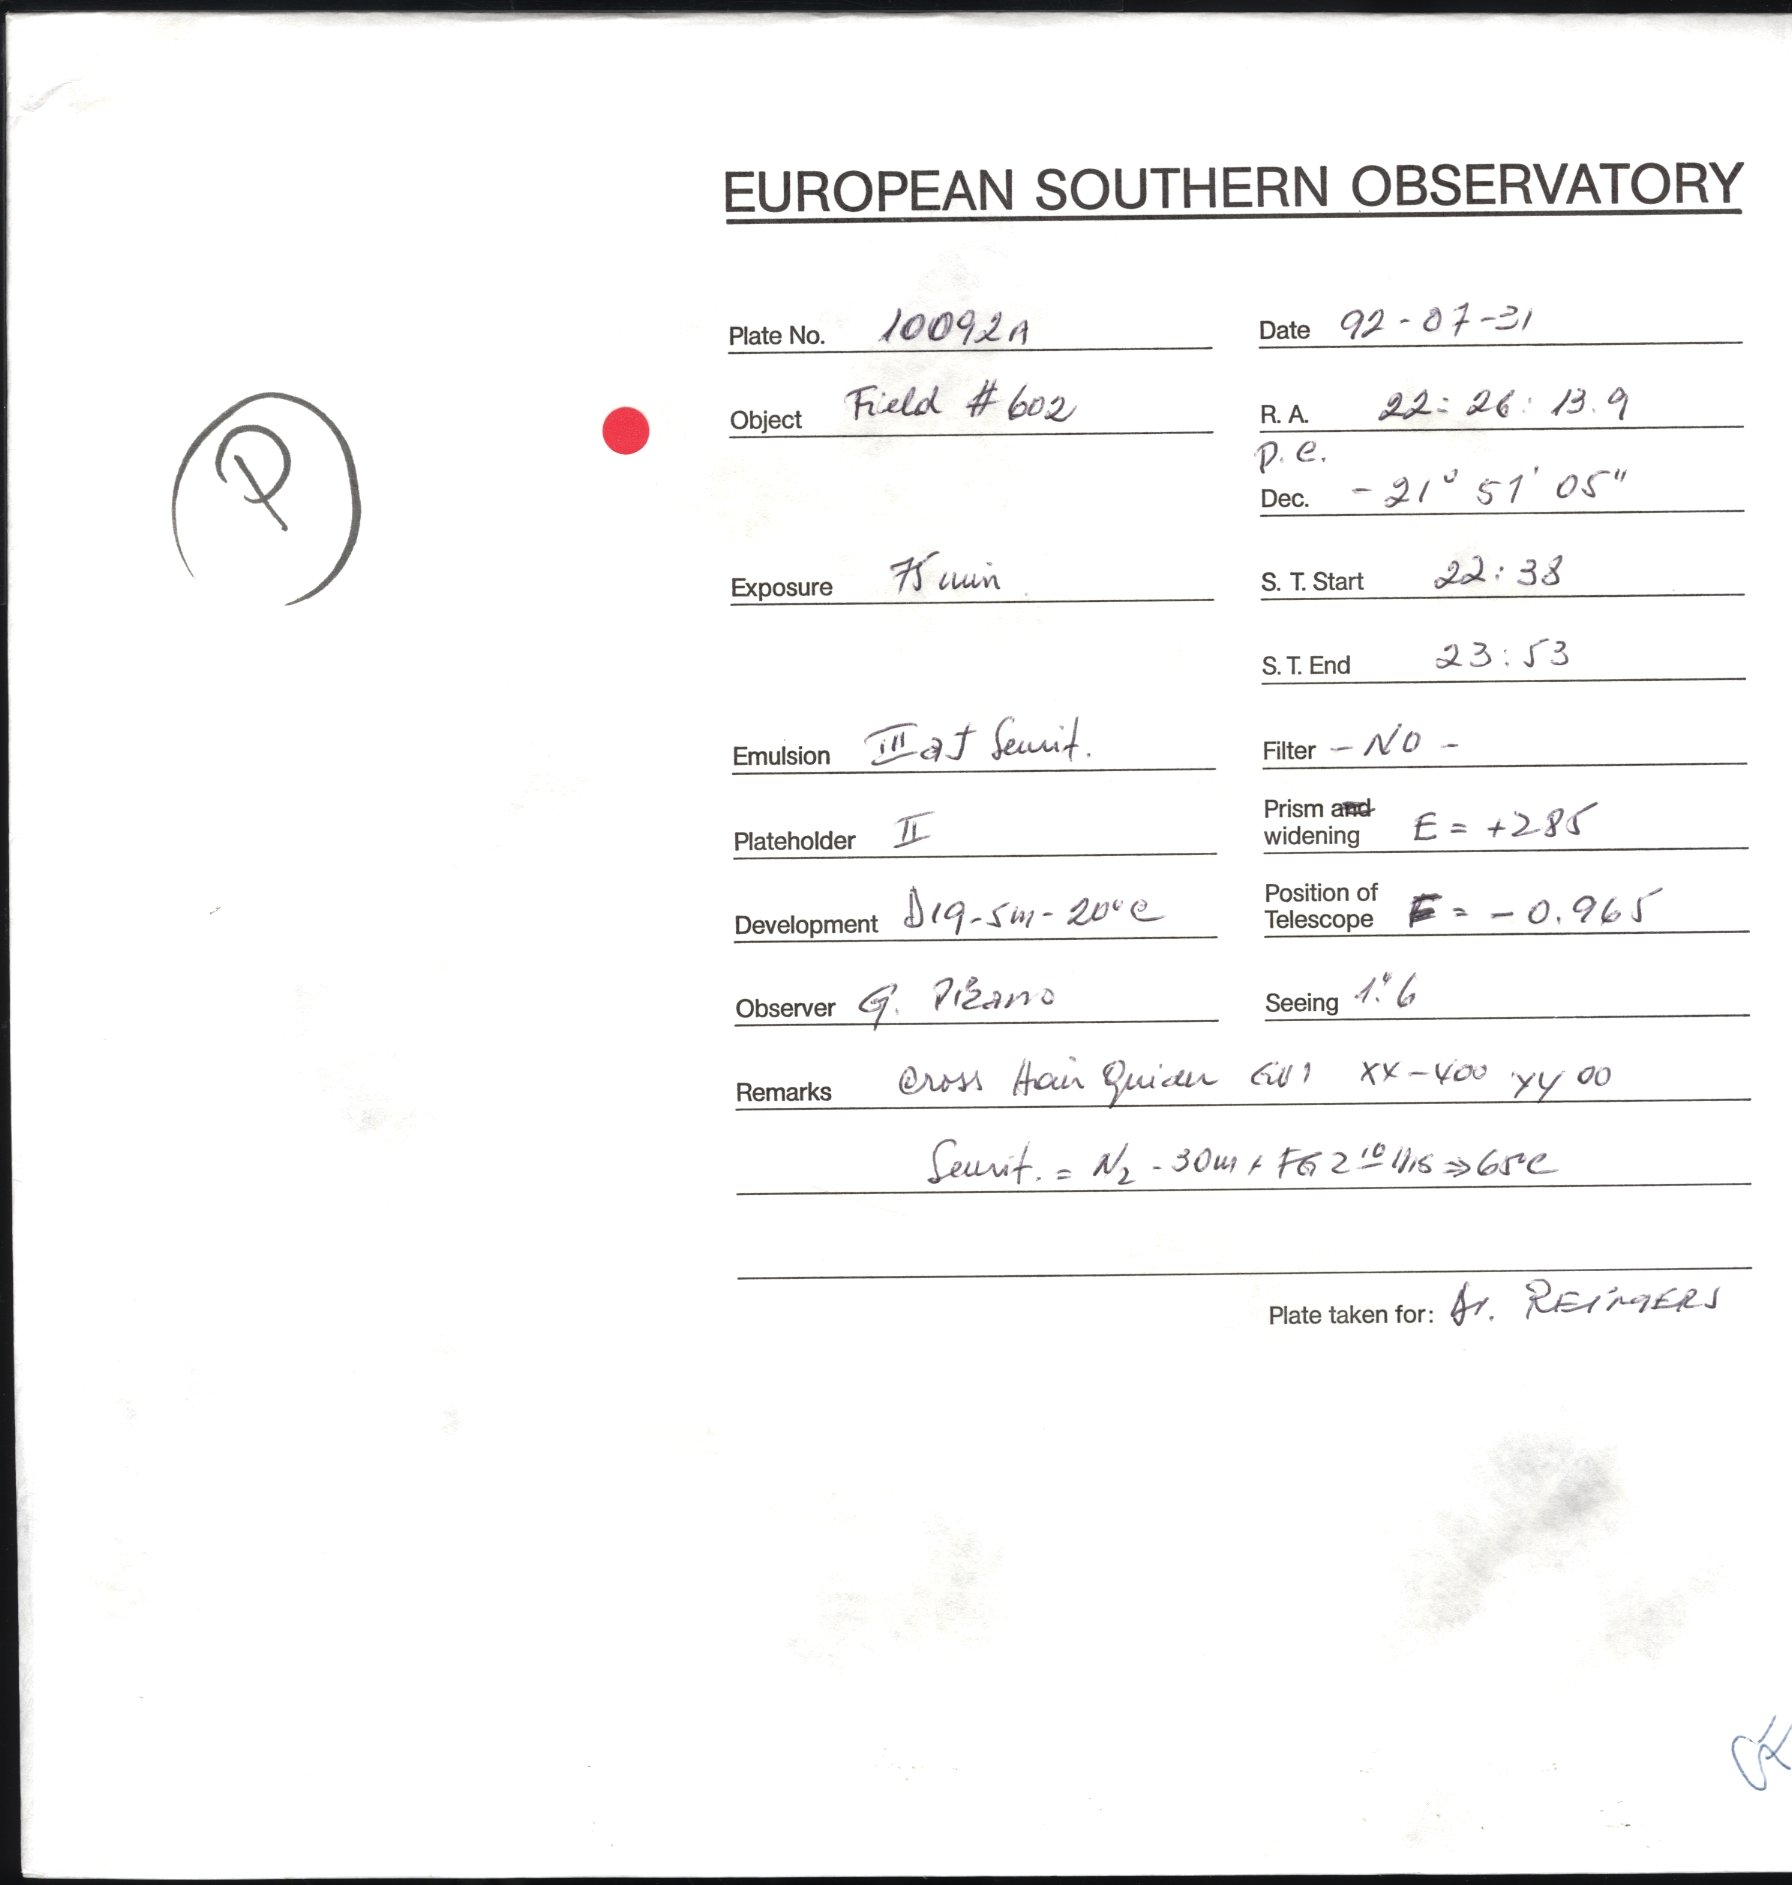 EUROPEAN SOUTHERN OBSERVATORY
Plate No. 10092A
Date 92-07-31
P
Object Field #602
R. A. 22: 26: 13.9
P. e.
Dec. - 21° 51' 05"
Exposure 75 min
S. T. Start 22:38
S. T. End 23:53
Emulsion III aJ Sensit.
Filter - NO -
Plateholder II
Prism and
widening E = +285
Development D19-5m-20°C
Position of
Telescope = - 0.965
Observer G. Pizarro
Seeing 1."6
Remarks Cross Hair Guider XX-400 YY 00
Sensit. = N2 - 30m + FG 2 ⇒65°C
Plate taken for: Dr. REIMERS
OK